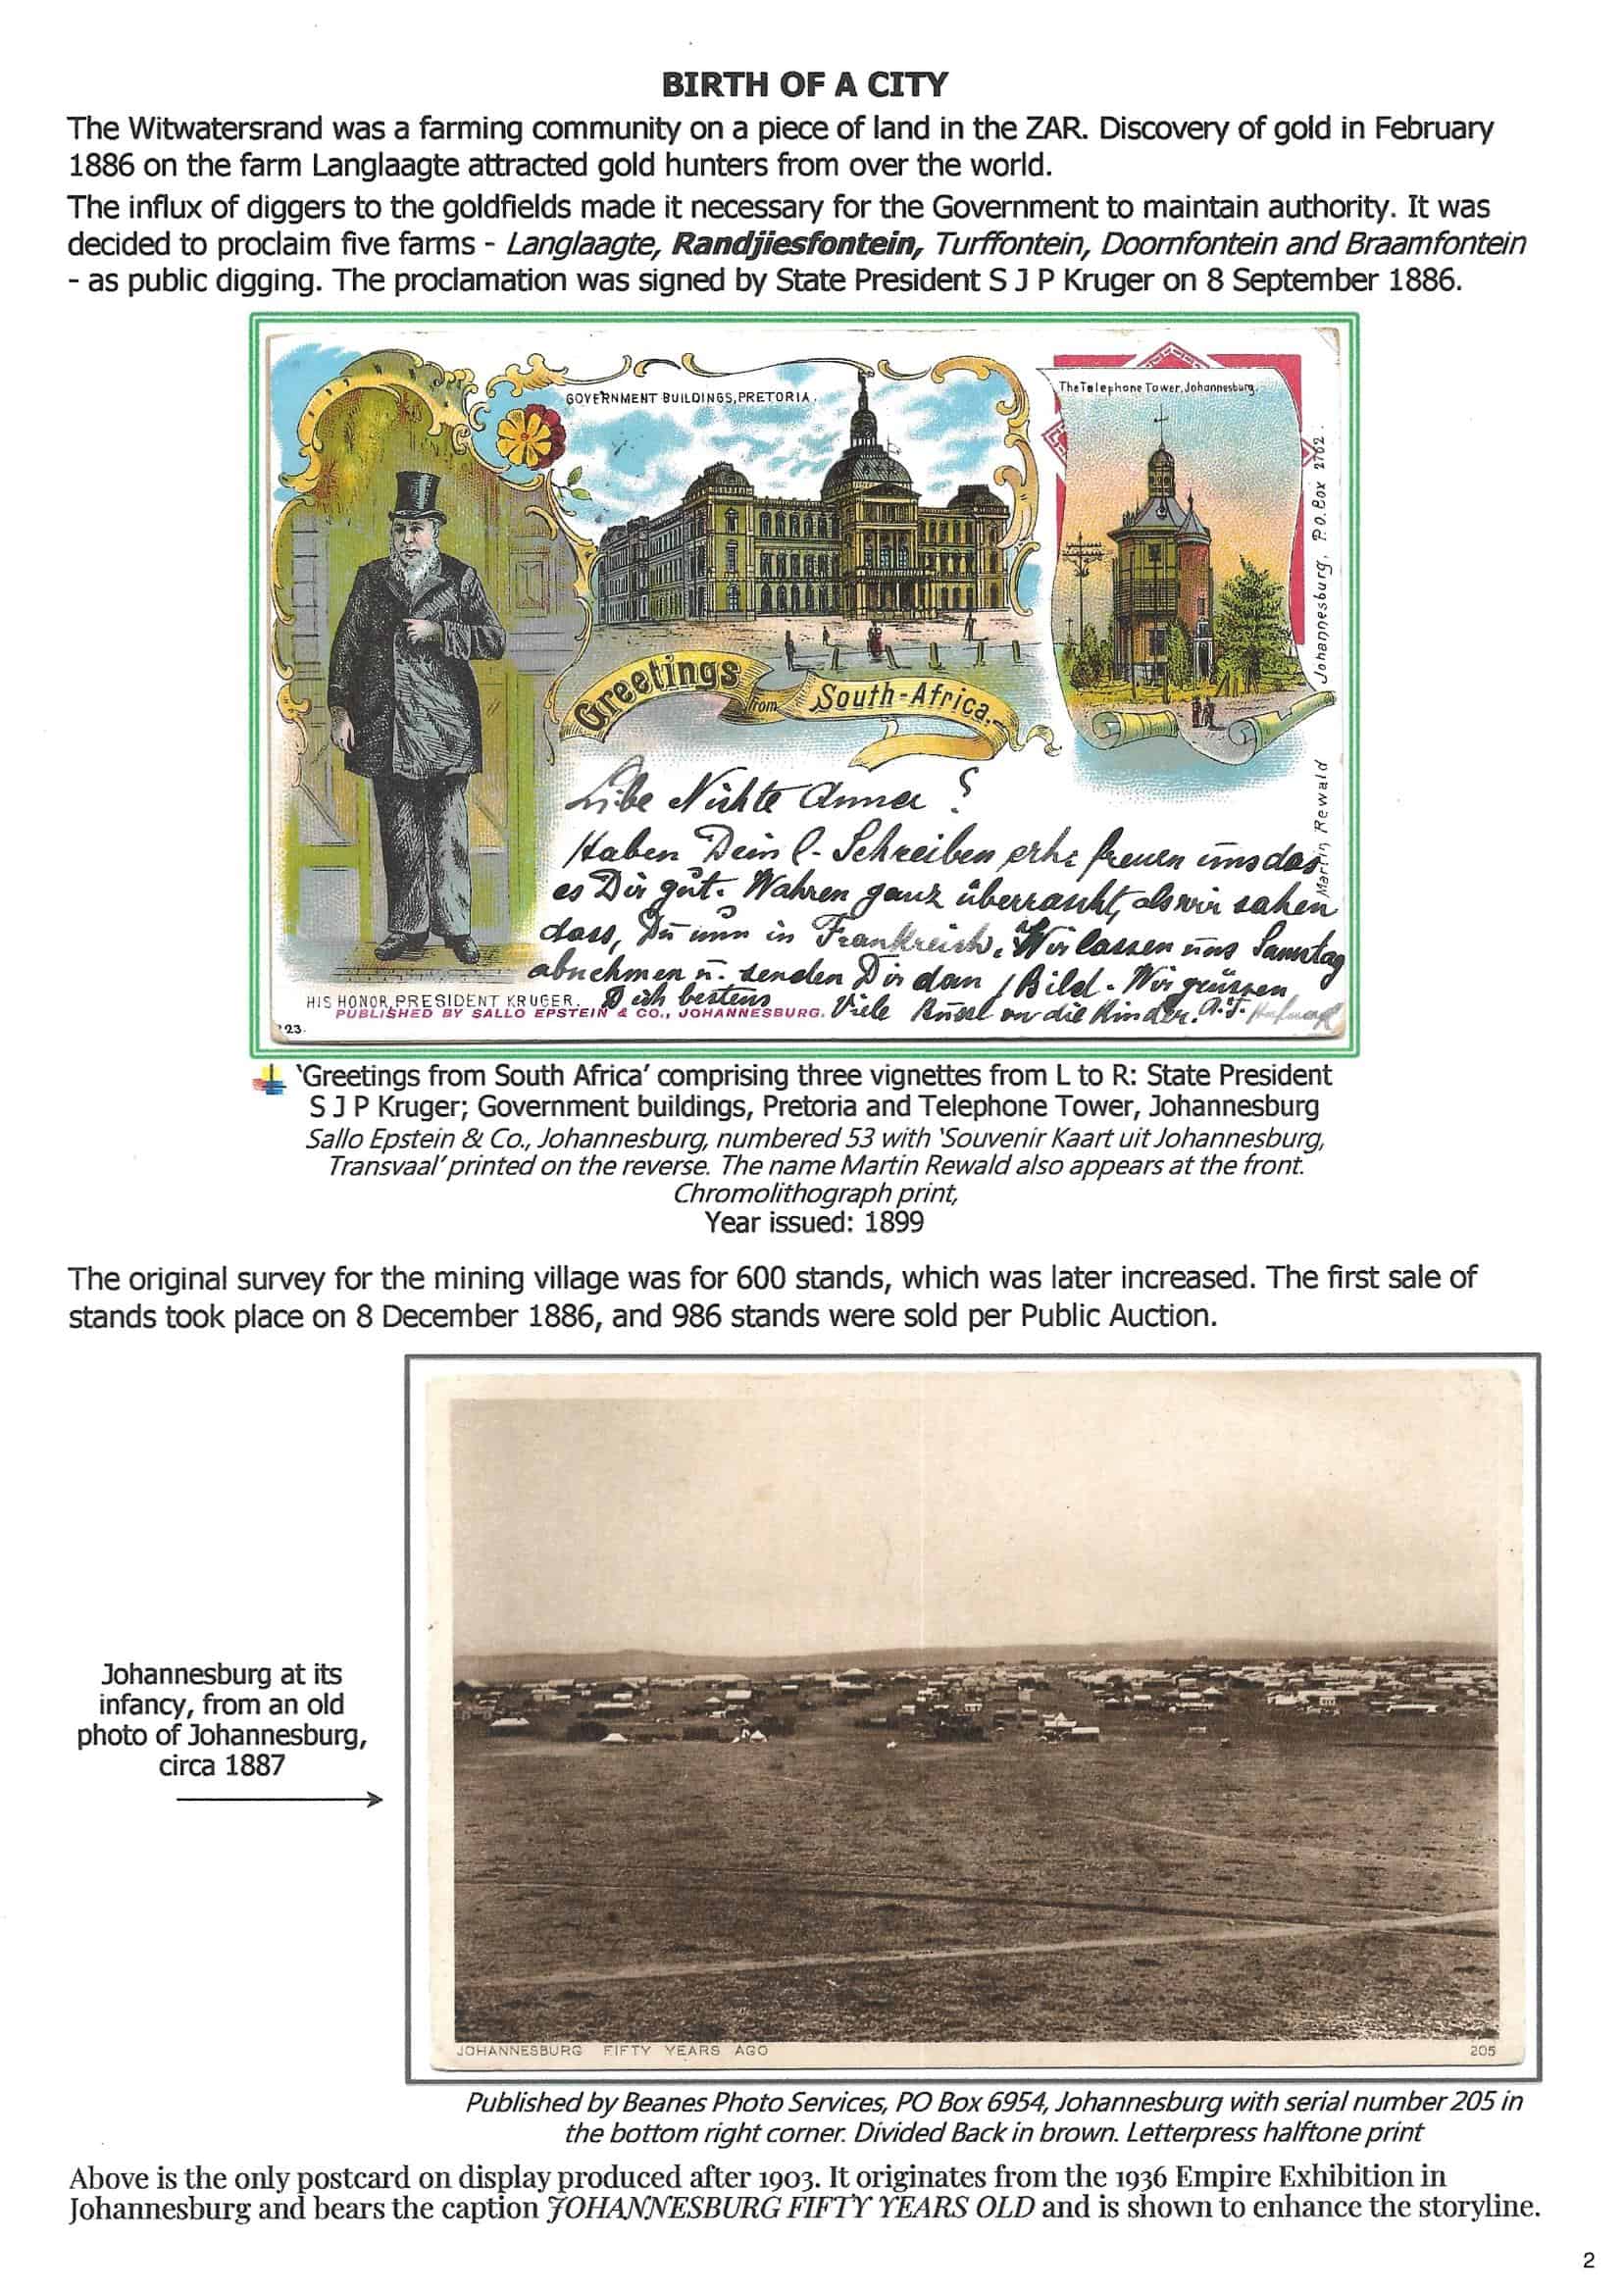 BIRTH OF A CITY
The Witwatersrand was a farming community on a piece of land in the ZAR. Discovery of gold in February
1886 on the farm Langlaagte attracted gold hunters from over the world.
The influx of diggers to the goldfields made it necessary for the Government to maintain authority. It was
decided to proclaim five farms - Langlaagte, Randjiesfontein, Turffontein, Doornfontein and Braamfontein
- as public digging. The proclamation was signed by State President S J P Kruger on 8 September 1886.
GOVERNMENT BUILDINGS, PRETORIA.
The Telephone Tower, Johannesburg.
Martin Rewald Johannesburg, P.O. Box 2762.
Greetings
from
South-Africa.
Libe Nichte Anna
Haben Dein l. Schreiben erh. freuen uns das
es Dir gut. Wahren ganz überrascht, als wir sahen
dass, Du nun in Frankreich. Wir lassen uns Sonntag
abnehmen u. senden Dir dan 1 Bild. Wir grüssen
Dich bestens Viele Küssel an die Kinder.
HIS HONOR, PRESIDENT KRUGER.
PUBLISHED BY SALLO EPSTEIN & CO., JOHANNESBURG.
23.
'Greetings from South Africa' comprising three vignettes from L to R: State President
S J P Kruger; Government buildings, Pretoria and Telephone Tower, Johannesburg
Sallo Epstein & Co., Johannesburg, numbered 53 with 'Souvenir Kaart uit Johannesburg,
Transvaal' printed on the reverse. The name Martin Rewald also appears at the front.
Chromolithograph print,
Year issued: 1899
The original survey for the mining village was for 600 stands, which was later increased. The first sale of
stands took place on 8 December 1886, and 986 stands were sold per Public Auction.
Johannesburg at its
infancy, from an old
photo of Johannesburg,
circa 1887
JOHANNESBURG FIFTY YEARS AGO
205
Published by Beanes Photo Services, PO Box 6954, Johannesburg with serial number 205 in
the bottom right corner. Divided Back in brown. Letterpress halftone print
Above is the only postcard on display produced after 1903. It originates from the 1936 Empire Exhibition in
Johannesburg and bears the caption JOHANNESBURG FIFTY YEARS OLD and is shown to enhance the storyline.
2